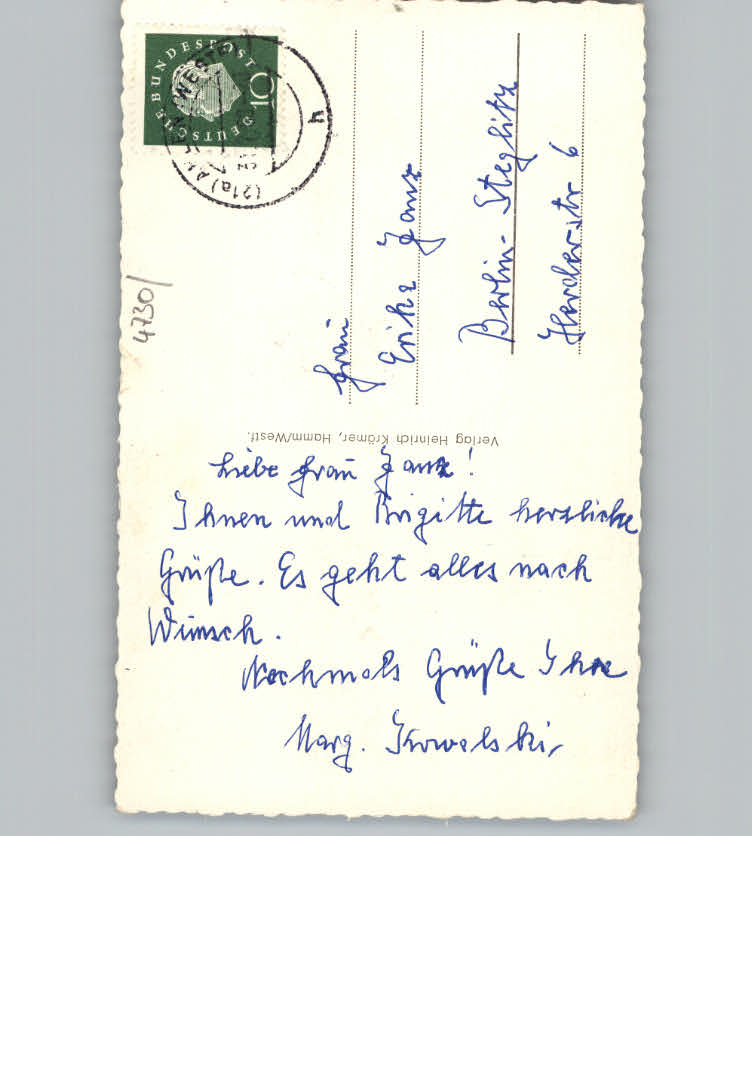 DEUTSCHE BUNDESPOST
10
(21a)
h
4730/
Frau
Erika Janz
Berlin-Steglitz
Herderstr 6
Verlag Heinrich Krämer, Hamm/Westf.
Liebe Frau Janz!
Ihnen und Brigitte herzliche
Grüße. Es geht alles nach
Wunsch.
Nochmals Grüße Ihre
Marg. Kowalski